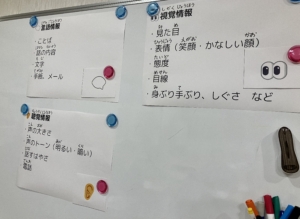 言語情報
・ことば
・話の内容
・文字
・手紙、メール
視覚情報
・見た目
・表情（笑顔・かなしい顔）
・態度
・目線
・身ぶり手ぶり、しぐさ など
聴覚情報
・声の大きさ
・声のトーン（明るい・暗い）
・話すはやさ
・電話